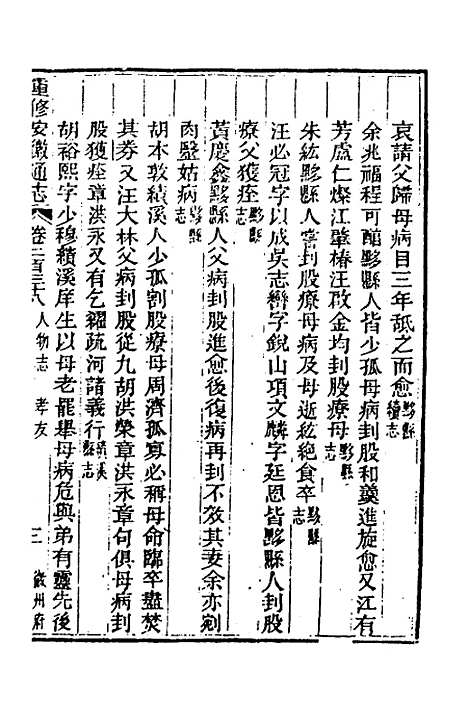 哀請父歸母病目三年舐之而愈黟縣續志
余兆福程可醅黟縣人皆少孤母病刲股和羹進旋愈又江有
芳盧仁燦江肇椿汪啟金均刲股療母黟縣志
朱紘黟縣人嘗刲股療母病及母逝紘絶食卒黟縣志
汪必冠字以成吳志巒字銳山項文麟字廷恩皆黟縣人刲股
療父獲痊黟縣志
黃慶鑫黟縣人父病刲股進愈後復病再刲不效其妻余亦剜
肉醫姑病黟縣志
胡本敦績溪人少孤割股療母周濟孤寡必稱母命臨卒盡焚
其券又汪大林父病刲股從九胡洪榮章洪永章句俱母病刲
股獲痊章洪永又有乞糴疏河諸義行績溪縣志
胡裕熙字少穆績溪庠生以母老罷舉母病危與弟有靈先後
重修安徽通志 卷二百三十八 人物志 孝友 三 徽州府